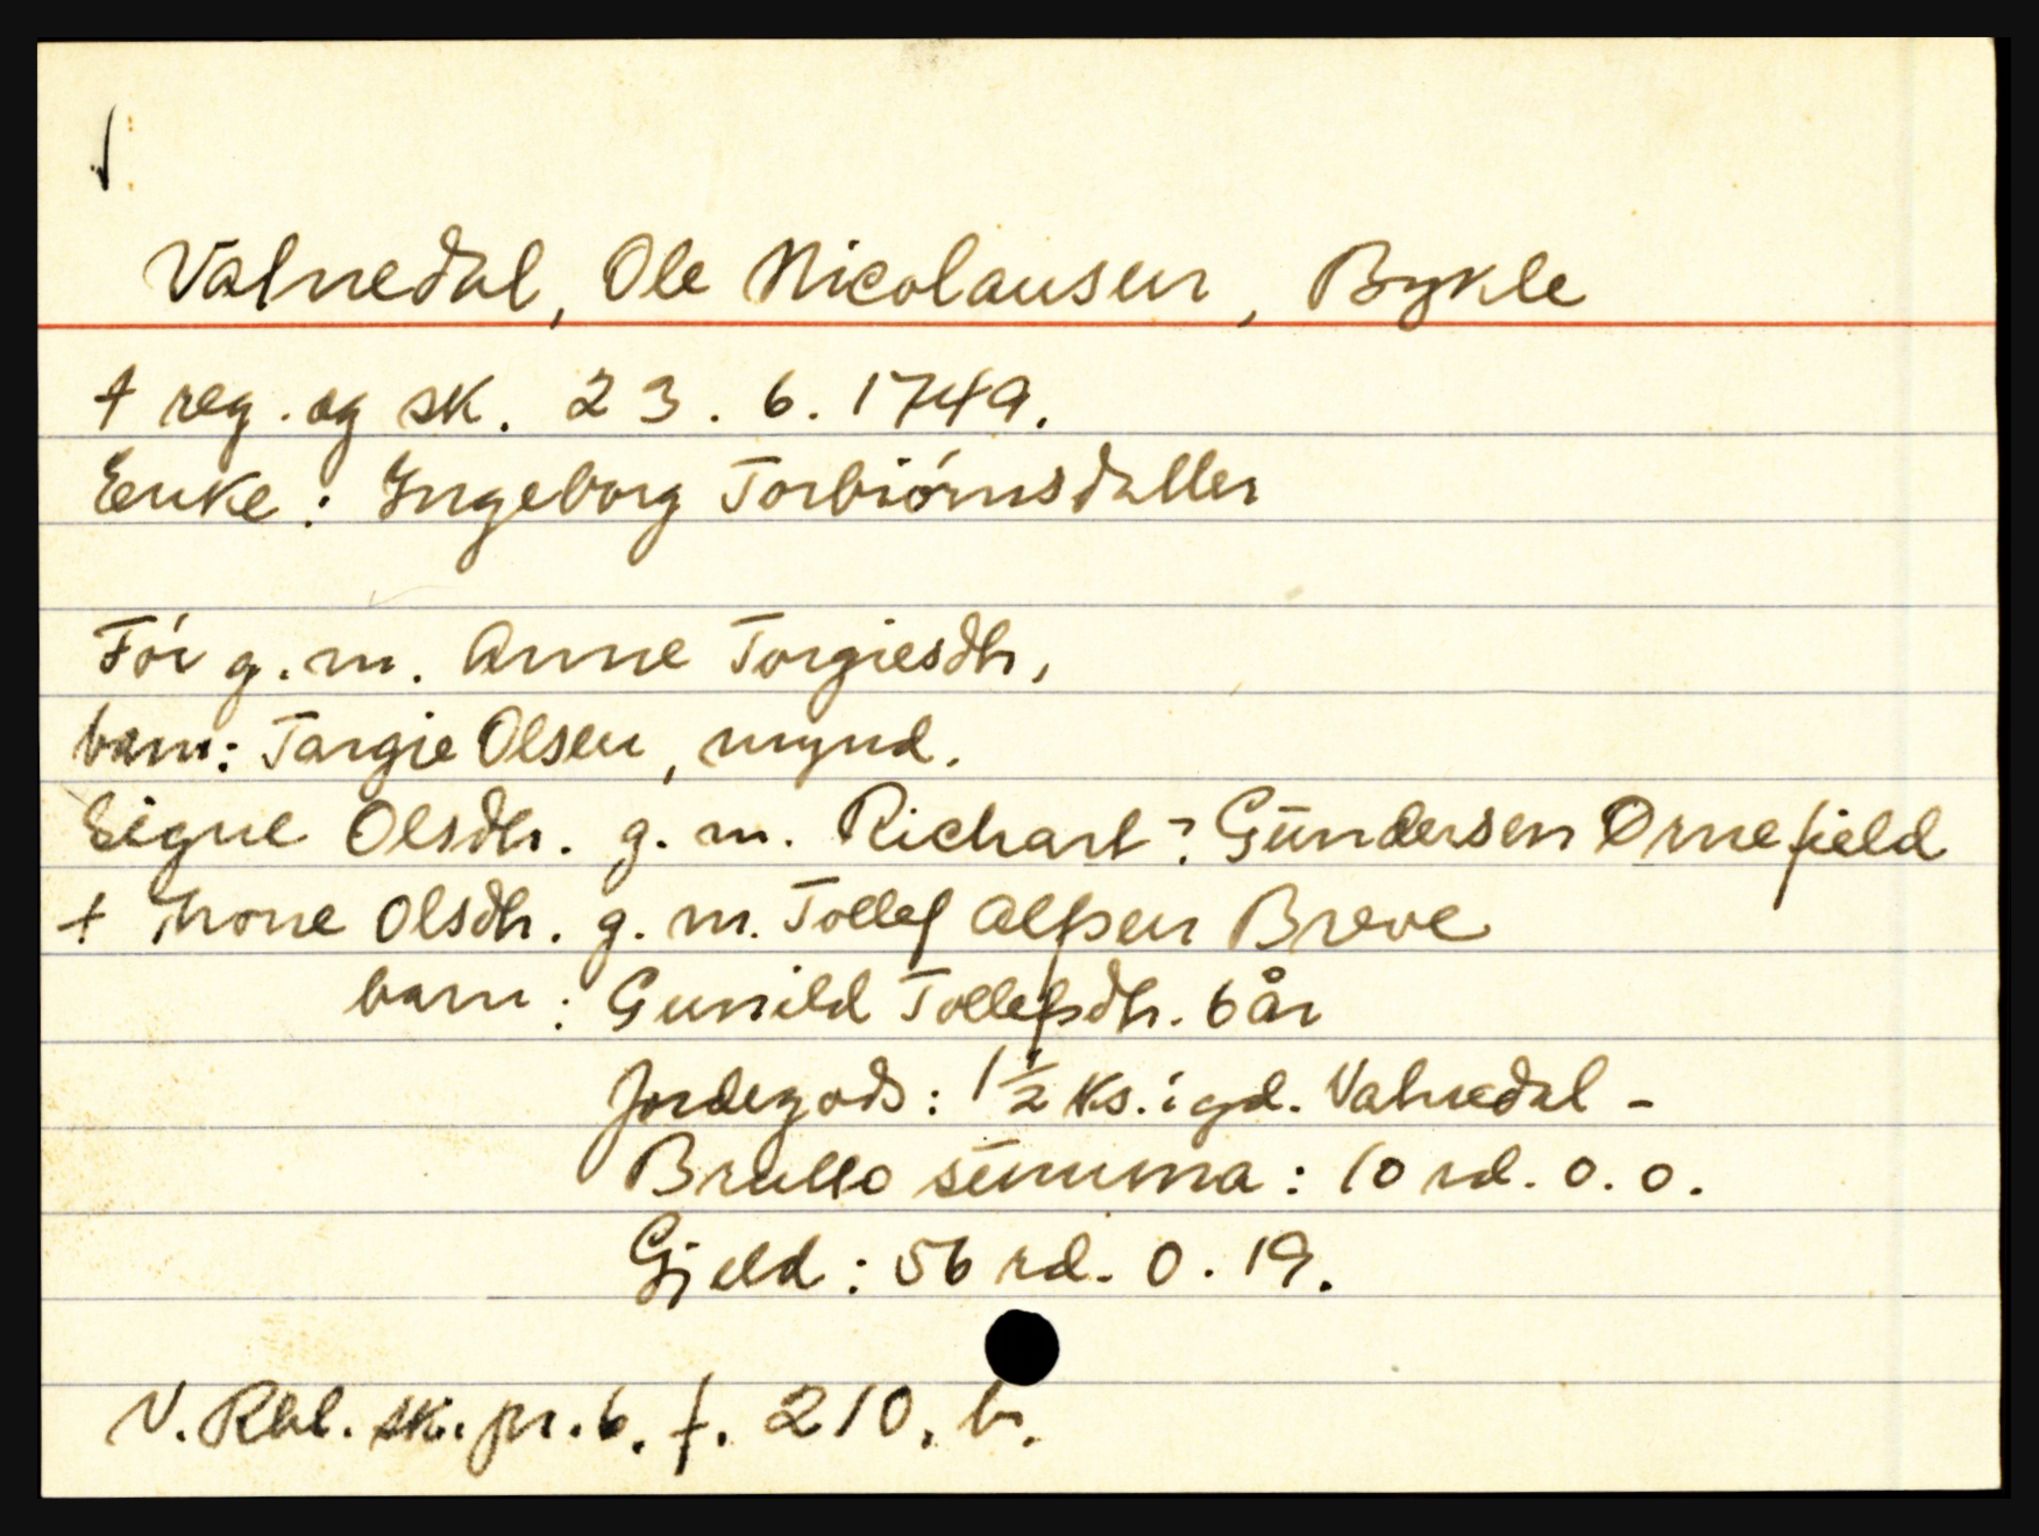 Valnedal, Ole Nicolausen, Bykle
† reg. og sk. 23. 6. 1749.
Enke: Ingeborg Torbiórnsdatter
Fór g. m. Anne Torgiesdtr,
barn: Targie Olsen, mynd.
Signe Olsdtr. g. m. Richart? Gundersen Ørnefield
† Thone Olsdtr. g. m. Tollef Alfsen Breve
barn: Gunild Tollefsdtr. 6 år
Jordegods: 1 1/2 Ks. i gd. Valnedal -
Brutto summa: 10 rd. 0. 0.
Gjeld: 56 rd. 0. 19.
N. Rbl. sk. pr. 6. f. 210. b.